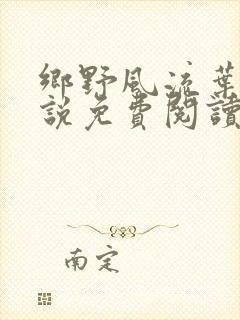 鄉野風流葉
說免費閱讀
南定